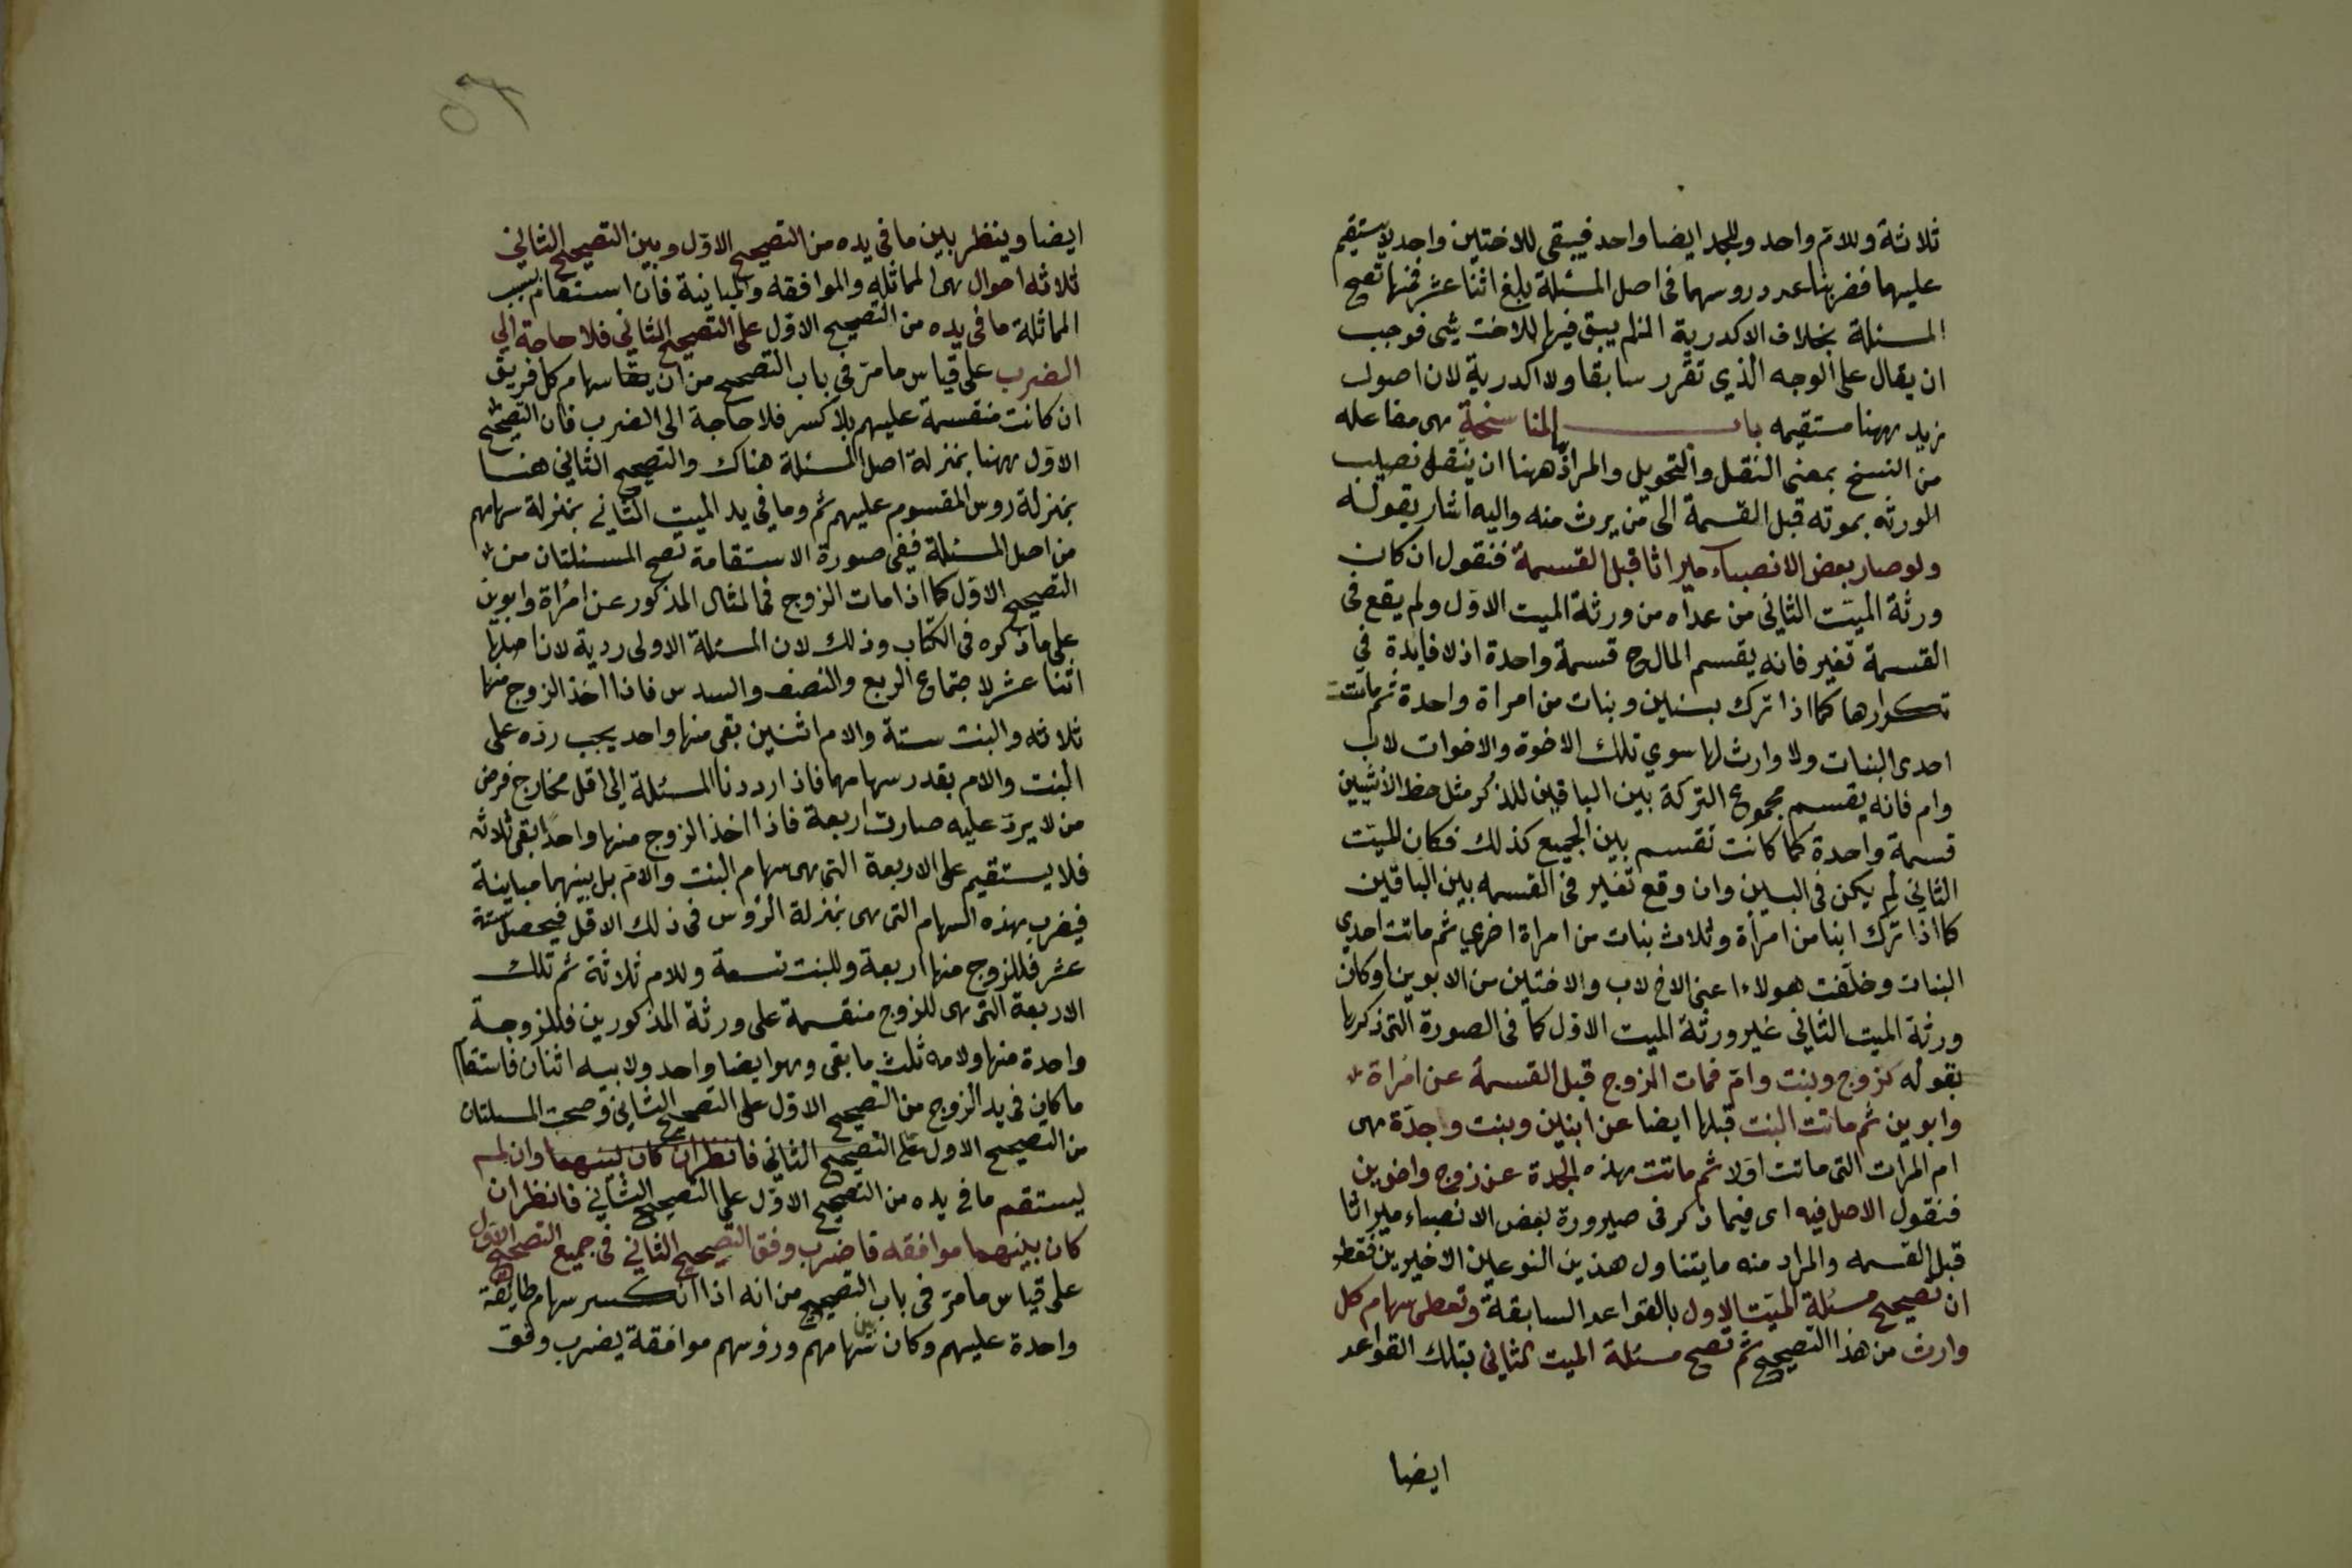 ثلاثة وللام واحد وللجد ايضا واحد فيبقى للاختين واحد لا يستقيم
عليهما فضربنا عدد روسهما فى اصل المسئلة بلغ اثنا عشر فمنها تصح
المسئلة بخلاف الاكدرية اذ لم يبق فيها للاخت شى فوجب
ان يقال على الوجه الذي تقرر سابقا ولا اكدرية لان اصول
زيد ههنا مستقيمه باب المناسخة هى مفاعله
من النسخ بمعنى النقل والتحويل والمراد ههنا ان ينقل نصيب
الورثه بموته قبل القسمة الى من يرث منه واليه اشار بقوله
ولو صار بعض الانصباء ميراثا قبل القسمة فنقول ان كان
ورثة الميت الثانى من عداه من ورثة الميت الاول ولم يقع فى
القسمة تغير فانه يقسم المال ح قسمة واحدة اذ لا فايدة في
تكرارها كما اذا ترك بنين وبنات من امراة واحدة ثم ماتت
احدى البنات ولا وارث لها سوي تلك الاخوة والاخوات لاب
وام فانه يقسم مجموع التركة بين الباقين للذكر مثل حظ الانثيين
قسمة واحدة كما كانت تقسم بين الجميع كذلك فكان الميت
الثاني لم يكن فى البين وان وقع تغير فى القسمه بين الباقين
كما اذا ترك ابنا من امرأة وثلاث بنات من امراة اخري ثم ماتت احدي
البنات وخلفت هولاء اعنى الاخ لاب والاختين من الابوين او كان
ورثة الميت الثاني غير ورثة الميت الاول كما فى الصورة التى ذكرها
بقوله كزوج وبنت وام فمات الزوج قبل القسمة عن امراة
وابوين ثم ماتت البنت قبلها ايضا عن ابنين وبنت وجدة هى
ام المرات التى ماتت اولا ثم ماتت هذه الجدة عن زوج واخوين
فنقول الاصل فيه اى فيما ذكر فى صيرورة بعض الانصباء ميراثا
قبل القسمه والمراد منه ما يتناول هذين النوعين الاخيرين فقط
ان تصحيح مسئلة الميت الاول بالقواعد السابقة وتعطى سهام كل
وارث من هذا التصحيح ثم تصح مسئلة الميت الثاني بتلك القواعد
ايضا
ايضا وينظر بين ما فى يده من التصحيح الاول وبين التصحيح الثاني
ثلاثه احوال هى المماثله والموافقه والمباينة فان استقام بسبب
المماثلة ما فى يده من التصحيح الاول على التصحيح الثاني فلا حاجة الي
الضرب على قياس ما مر فى باب التصحيح من ان سهام كل فريق
ان كانت منقسمة عليهم بلا كسر فلا حاجة الى الضرب فان التصحيح
الاول ههنا بمنزلة اصل المسئلة هناك والتصحيح الثاني هنا
بمنزلة روس المقسوم عليهم ثم وما في يد الميت الثاني بمنزلة سهامهم
من اصل المسئلة ففى صورة الاستقامة تصح المسئلتان من
التصحيح الاول كما اذا مات الزوج فى المثال المذكور عن امراة وابوين
على ما ذكره فى الكتاب وذلك لان المسئلة الاولى ردية لان اصلها
اثنا عشر لاجتماع الربع والنصف والسدس فاذا اخذ الزوج منها
ثلاثه والبنت ستة والام اثنين بقى منها واحد يجب رده على
البنت والام بقدر سهامهما فاذا رددنا المسئلة الى اقل مخارج فرض
من لا يرد عليه صارت اربعة فاذا اخذ الزوج منها واحدا بقى ثلاثه
فلا يستقيم على الاربعة التى هى سهام البنت والام بل بينهما مباينة
فيضرب هذه السهام التى هى بمنزلة الروس فى ذلك الاقل فيحصل ستة
عشر فللزوج منها اربعة وللبنت تسعة وللام ثلاثة ثم تلك
الاربعة التى هى للزوج منقسمة على ورثة المذكورين فللزوجة
واحدة منها ولامه ثلث ما بقى وهو ايضا واحد ولابيه اثنان فاستقام
ما كان فى يد الزوج من التصحيح الاول على التصحيح الثاني وصحت المسلتان
من التصحيح الاول على التصحيح الثاني فانظر ان كان بينهما وان لم
يستقم ما فى يده من التصحيح الاول على التصحيح الثاني فانظر ان
كان بينهما موافقه فاضرب وفق التصحيح الثاني فى جميع التصحيح الاول
على قياس ما مر فى باب التصحيح من انه اذا انكسر سهام طايفة
واحدة عليهم وكان بين سهامهم ورؤسهم موافقة يضرب وفق